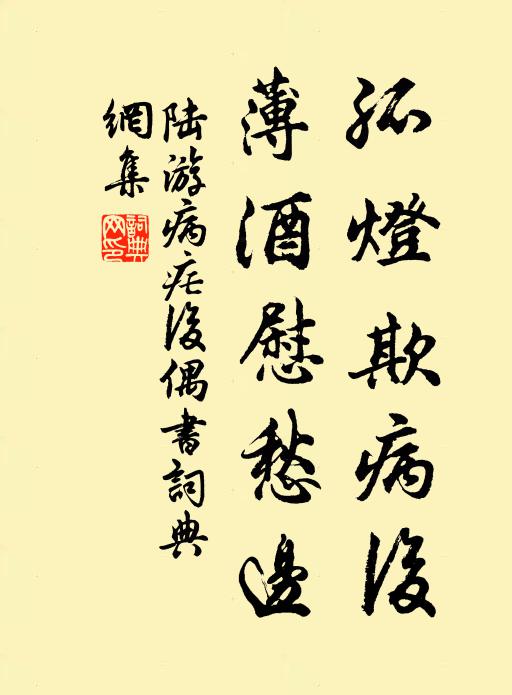 孤燈欺病後
薄酒慰愁邊
陆游病疟後偶書詞典
網集
詞典網印